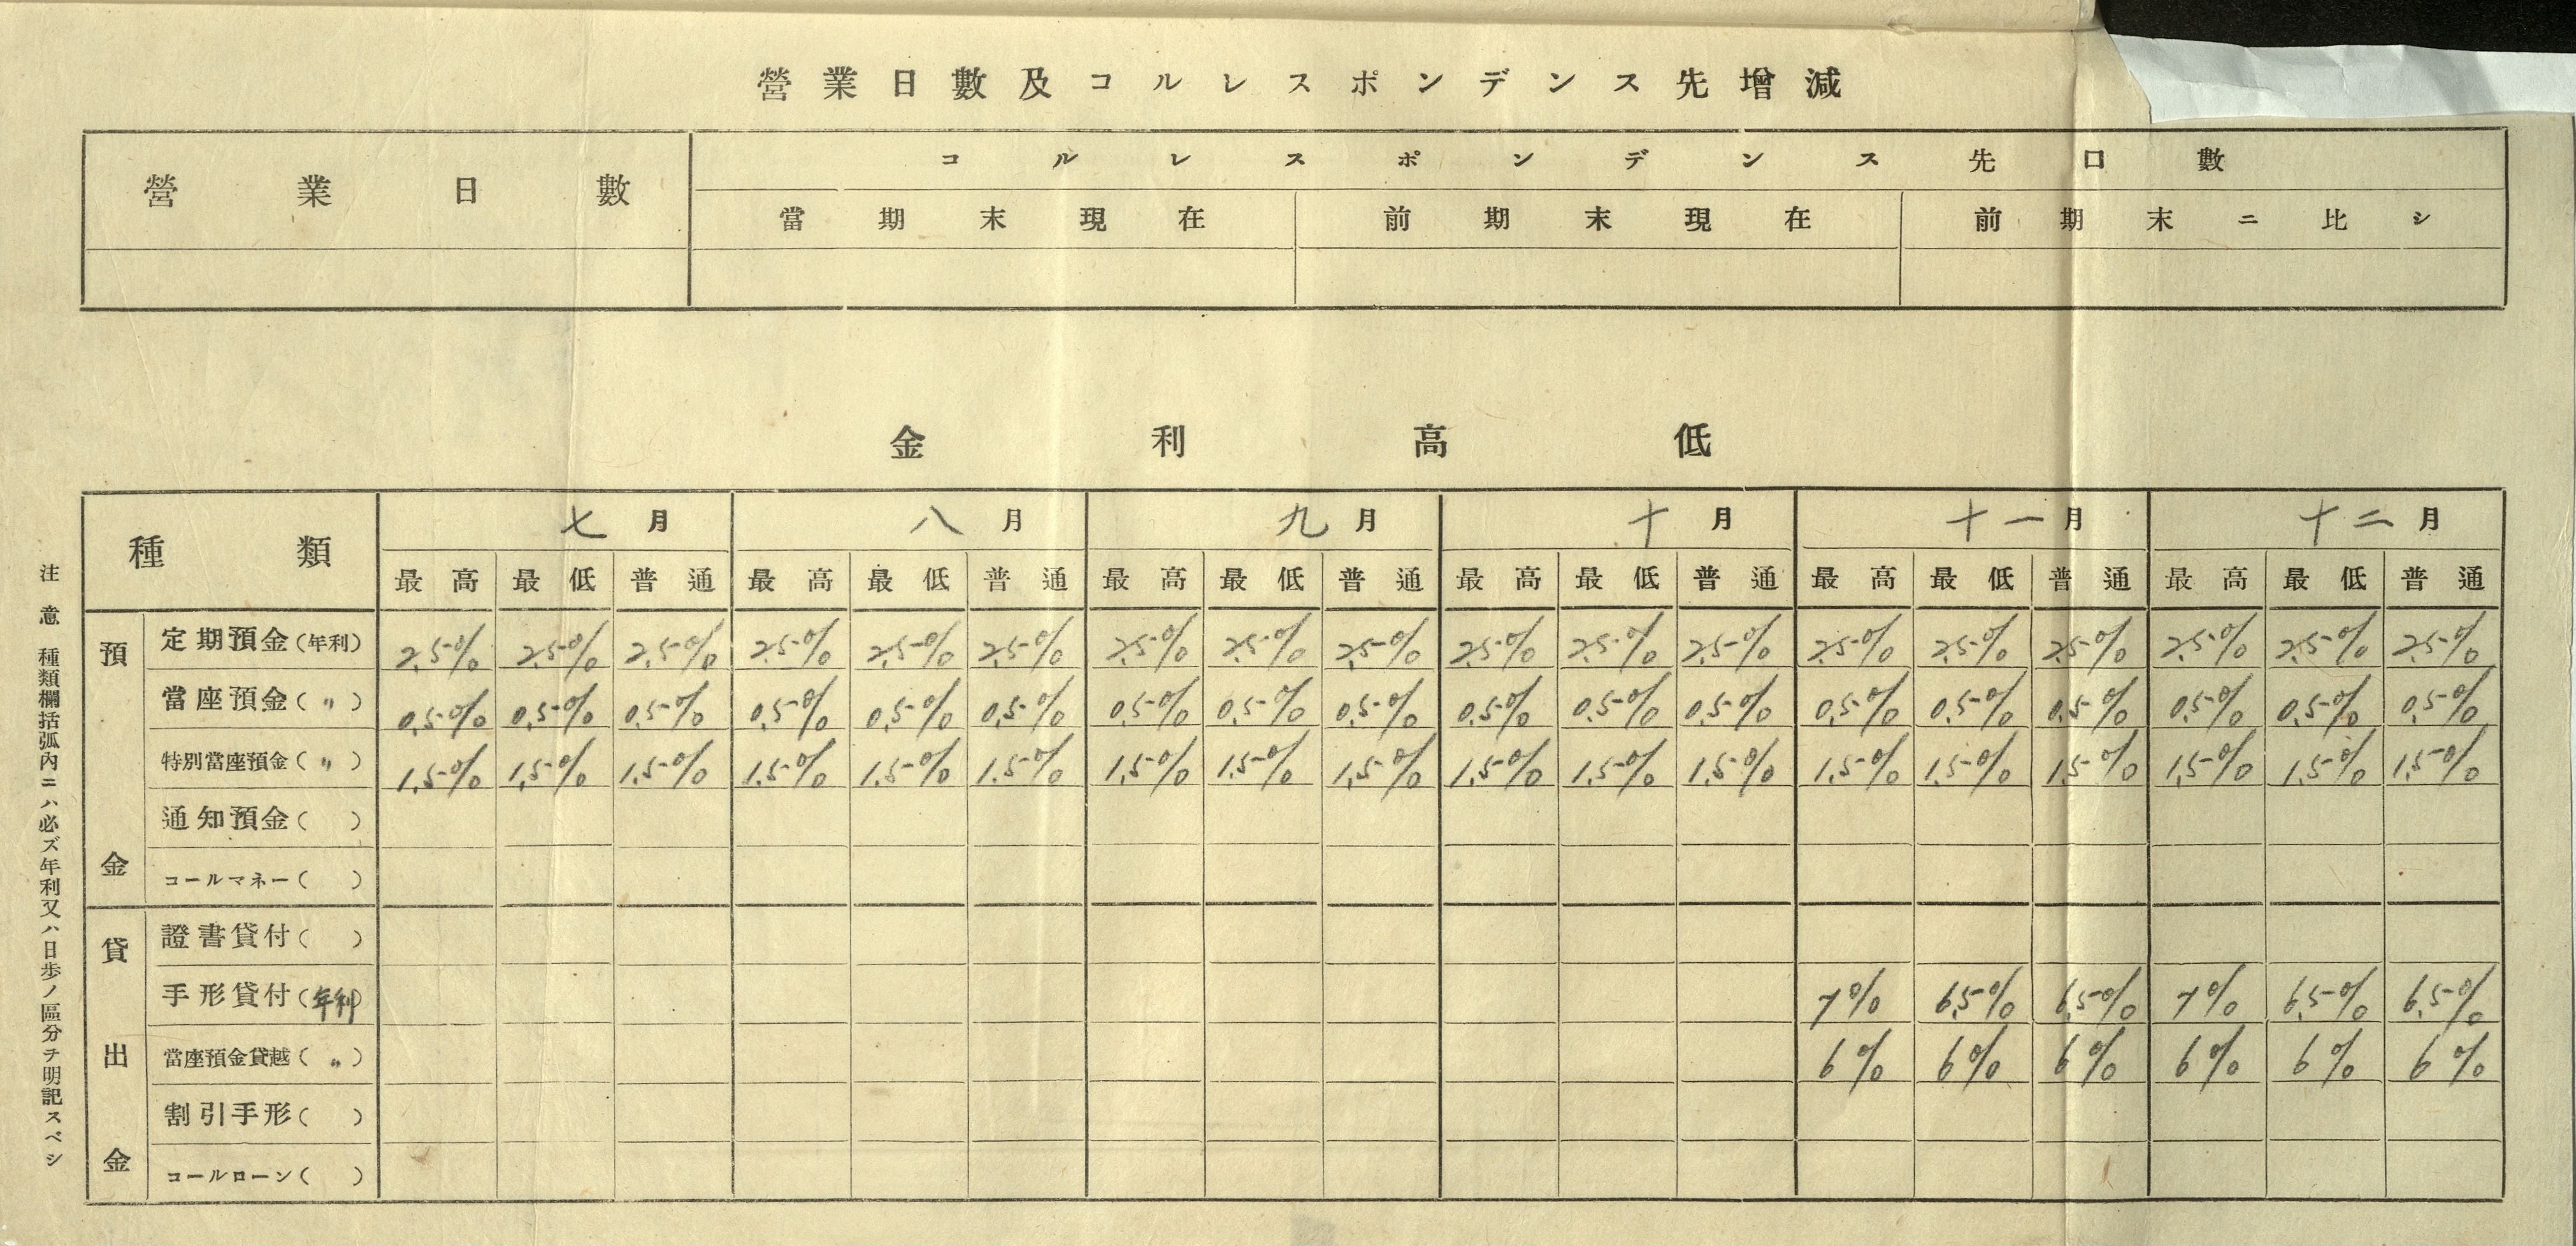 營業日數及コルレスポンデンス先增減
營業日數
コルレスポンデンス先口數
當期末現在 前期末現在 前期末ニ比シ
金利高低
種類 七月 八月 九月 十月 十一月 十二月
最高 最低 普通 最高 最低 普通 最高 最低 普通 最高 最低 普通 最高 最低 普通 最高 最低 普通
預金
定期預金(年利) 2.5% 2.5% 2.5% 2.5% 2.5% 2.5% 2.5% 2.5% 2.5% 2.5% 2.5% 2.5% 2.5% 2.5% 2.5% 2.5% 2.5% 2.5%
當座預金(〃) 0.5% 0.5% 0.5% 0.5% 0.5% 0.5% 0.5% 0.5% 0.5% 0.5% 0.5% 0.5% 0.5% 0.5% 0.5% 0.5% 0.5% 0.5%
特別當座預金(〃) 1.5% 1.5% 1.5% 1.5% 1.5% 1.5% 1.5% 1.5% 1.5% 1.5% 1.5% 1.5% 1.5% 1.5% 1.5% 1.5% 1.5% 1.5%
通知預金( )
コールマネー( )
貸出金
證書貸付( )
手形貸付(年利) 7% 6.5% 6.5% 7% 6.5% 6.5%
當座預金貸越(〃) 6% 6% 6% 6% 6% 6%
割引手形( )
コールローン( )
注意 種類欄括弧內ニハ必ズ年利又ハ日步ノ區分ヲ明記スベシ